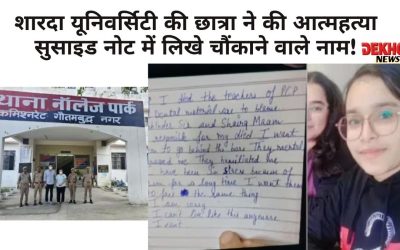 शारदा यूनिवर्सिटी की छात्रा ने की आत्महत्या
सुसाइड नोट में लिखे चौंकाने वाले नाम!
DEKHO
NEWS
थाना नॉलेज पार्क
कमिश्नरेट गौतमबुद्ध नगर
I died the teachers of PCP
Dental material are to blame
Sir and Maam
for my died I want
to go behind the bars They
me They humiliated me
have been in stress because of
for a long time I want them
the same thing
I am sorry
I can't live like this anymore
I can't